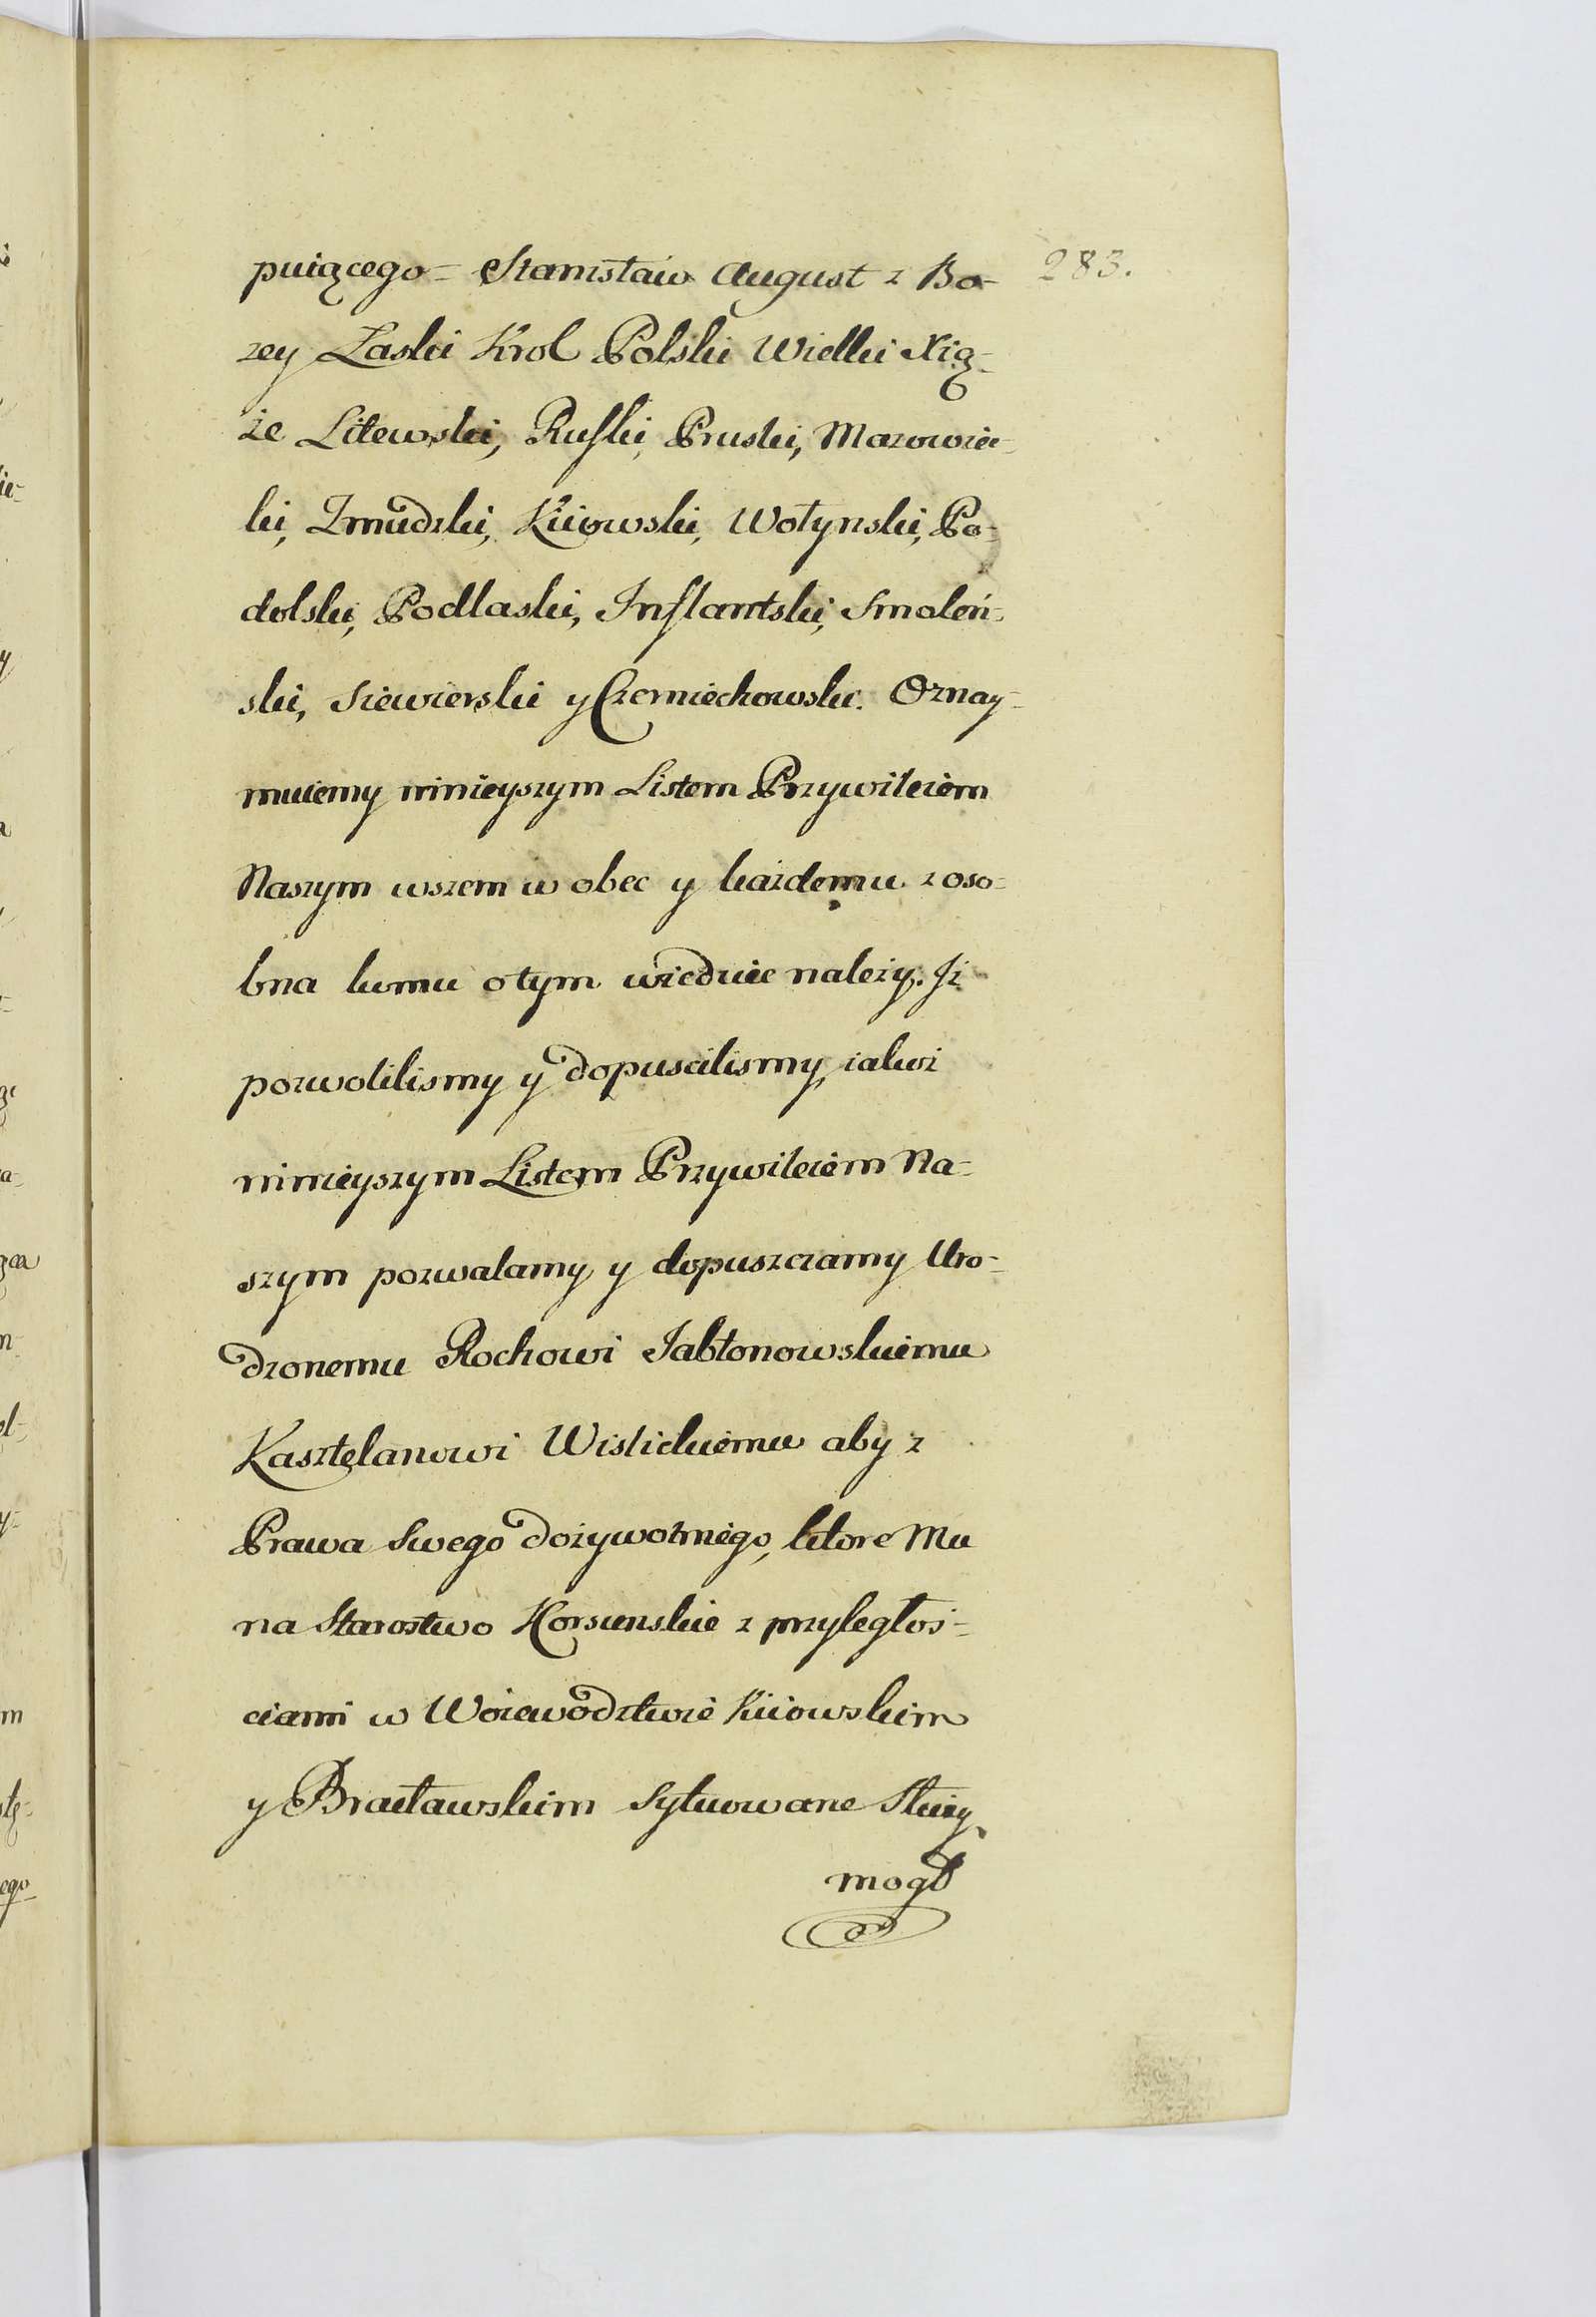 puiącego = Stanisław August z Bo-
283.
zey Łaski Krol Polski Wielki Xią-
że Litewski, Ruski, Pruski, Mazowiec-
ki, Zmudzki, Kiiowski, Wołynski, Po-
dolski, Podlaski, Inflantski, Smoleń-
ski, Siewierski y Czerniechowski. Oznay-
muiemy ninieyszym Listem Przywileiem
Naszym wszem w obec y każdemu z oso-
bna komu o tym wiedziec należy. Iż
pozwolilismy y dopuscilismy, iakoż
ninieyszym Listem Przywileiem Na-
szym pozwalamy y dopuszczamy Uro-
dzonemu Rochowi Jabłonowskiemu
Kasztelanowi Wislickiemu aby z
Prawa Swego dożywotniego, ktore Mu
na Starostwo Korsunskie z przyległoś-
ciami w Woiewodztwie Kiiowskim
y Bracławskim Sytuowane Służy,
mogł